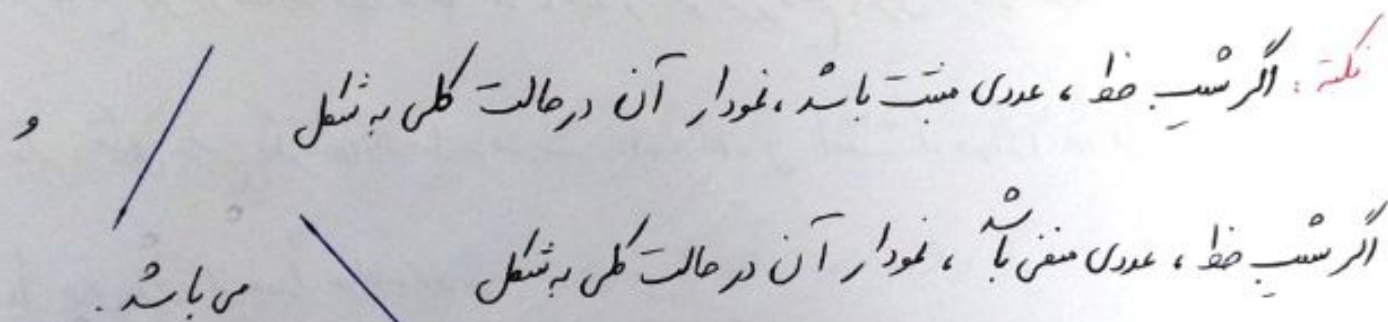 نکته: اگر شیب خط، عددی مثبت باشد، نمودار آن در حالت کلی به شکل و
اگر شیب خط، عددی منفی باشد، نمودار آن در حالت کلی به شکل می باشد.